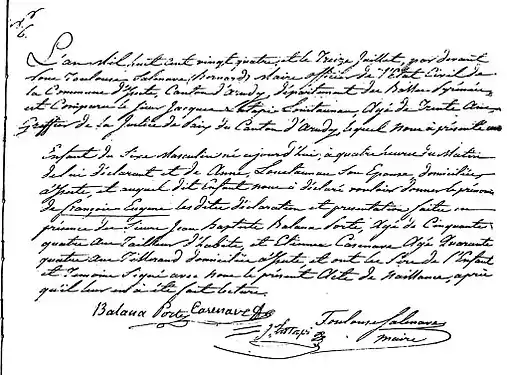 L'an Mil huit cent vingt quatre, et le Treize Juillet, par devant
Nous Toulouse Salenave, Bernard, Maire officier de l'Etat Civil de
la Commune d'Izeste, Canton d'Arudy, département des Basses Pyrénées
est Comparu le sieur Jacques Lostapi Loustaunau, Agé de Trente Ans
Greffier de la Justice de Paix du Canton d'Arudy, lequel nous a présenté un
Enfant du Sexe Masculin né aujourd'hui, à quatre heures du Matin
de lui déclarant et de Anne, Loustaunau son Epouse domiciliés
d'Izeste, et auquel dit Enfant nous a déclaré vouloir donner le prénom
de François Eugène les dites déclaration et présentation faites en
présence des Sieurs Jean Baptiste Balana Porte, Agé de Cinquante
quatre Ans Tailleur d'habits, et Etienne Casenave Agé Quarante
quatre Ans Tisserand domiciliés d'Izeste, et ont les Père de l'Enfant
et Témoins Signé avec Nous le présent Acte de Naissance, après
qu'il leur en a été fait lecture.
Balana Porte Casenave
J. Lostapi Toulouse Salenave
maire